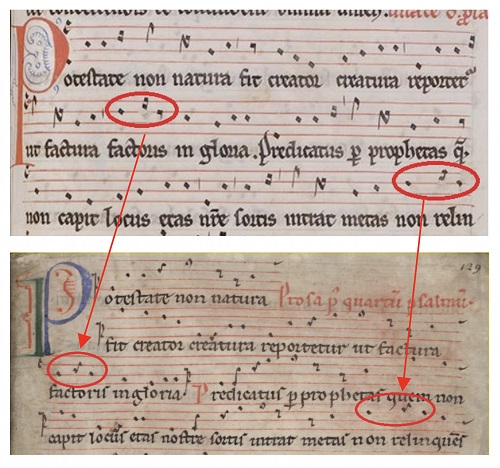 Potestate non natura fit creator creatura reportet
ut factura factoris in gloria. Predicatus p prophetas q
non capit locus etas nre sortis intrat metas non relin
129
Potestate non natura Prosa p quartū psalmū.
fit creator creatura reportetur ut factura
factoris in gloria Predicatus p prophetas quem non
capit locus etas nostre sortis intrat metas non relinquens